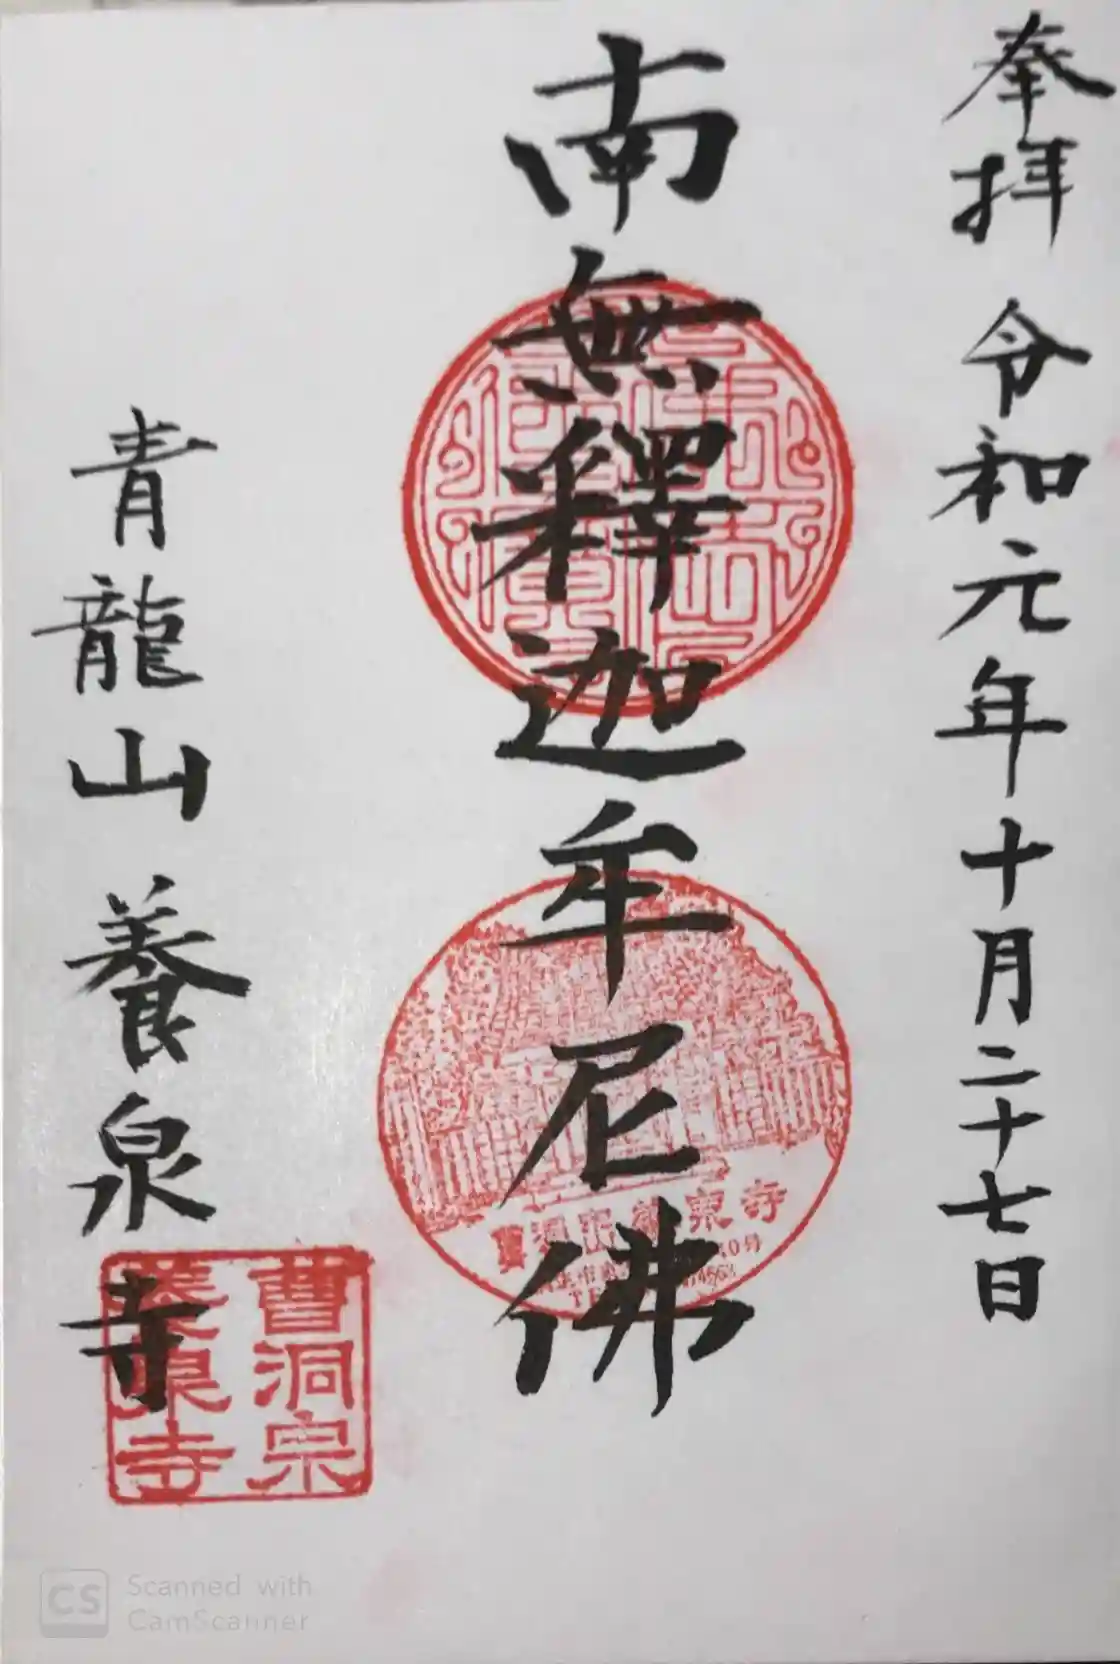 奉拝 令和元年十月二十七日
南無釋迦牟尼佛
青龍山 養泉寺
曹洞宗
養泉寺
曹洞宗 養泉寺
CS Scanned with
CamScanner